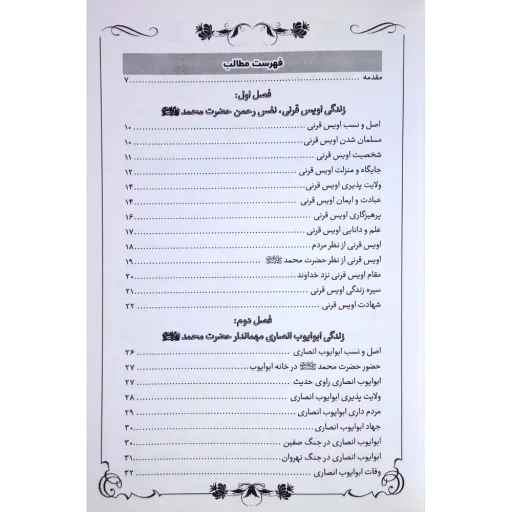 فهرست مطالب
مقدمه ........ ۷
فصل اول:
زندگی اویس قرنی، نفس رحمن حضرت محمد ﷺ
اصل و نسب اویس قرنی ........ ۱۰
مسلمان شدن اویس قرنی ........ ۱۰
شخصیت اویس قرنی ........ ۱۱
جایگاه و منزلت اویس قرنی ........ ۱۲
ولایت پذیری اویس قرنی ........ ۱۴
عبادت و ایمان اویس قرنی ........ ۱۴
پرهیزگاری اویس قرنی ........ ۱۶
علم و دانایی اویس قرنی ........ ۱۷
اویس قرنی از نظر مردم ........ ۱۸
اویس قرنی از نظر حضرت محمد ﷺ ........ ۱۹
مقام اویس قرنی نزد خداوند ........ ۲۰
سیره زندگی اویس قرنی ........ ۲۱
شهادت اویس قرنی ........ ۲۲
فصل دوم:
زندگی ابوایوب انصاری مهماندار حضرت محمد ﷺ
اصل و نسب ابوایوب انصاری ........ ۲۶
حضور حضرت محمد ﷺ در خانه ابوایوب ........ ۲۷
ابوایوب انصاری راوی حدیث ........ ۲۷
ولایت پذیری ابوایوب انصاری ........ ۲۸
مردم داری ابوایوب انصاری ........ ۲۹
جهاد ابوایوب انصاری ........ ۳۰
ابوایوب انصاری در جنگ صفین ........ ۳۰
ابوایوب انصاری در جنگ نهروان ........ ۳۱
وفات ابوایوب انصاری ........ ۳۲